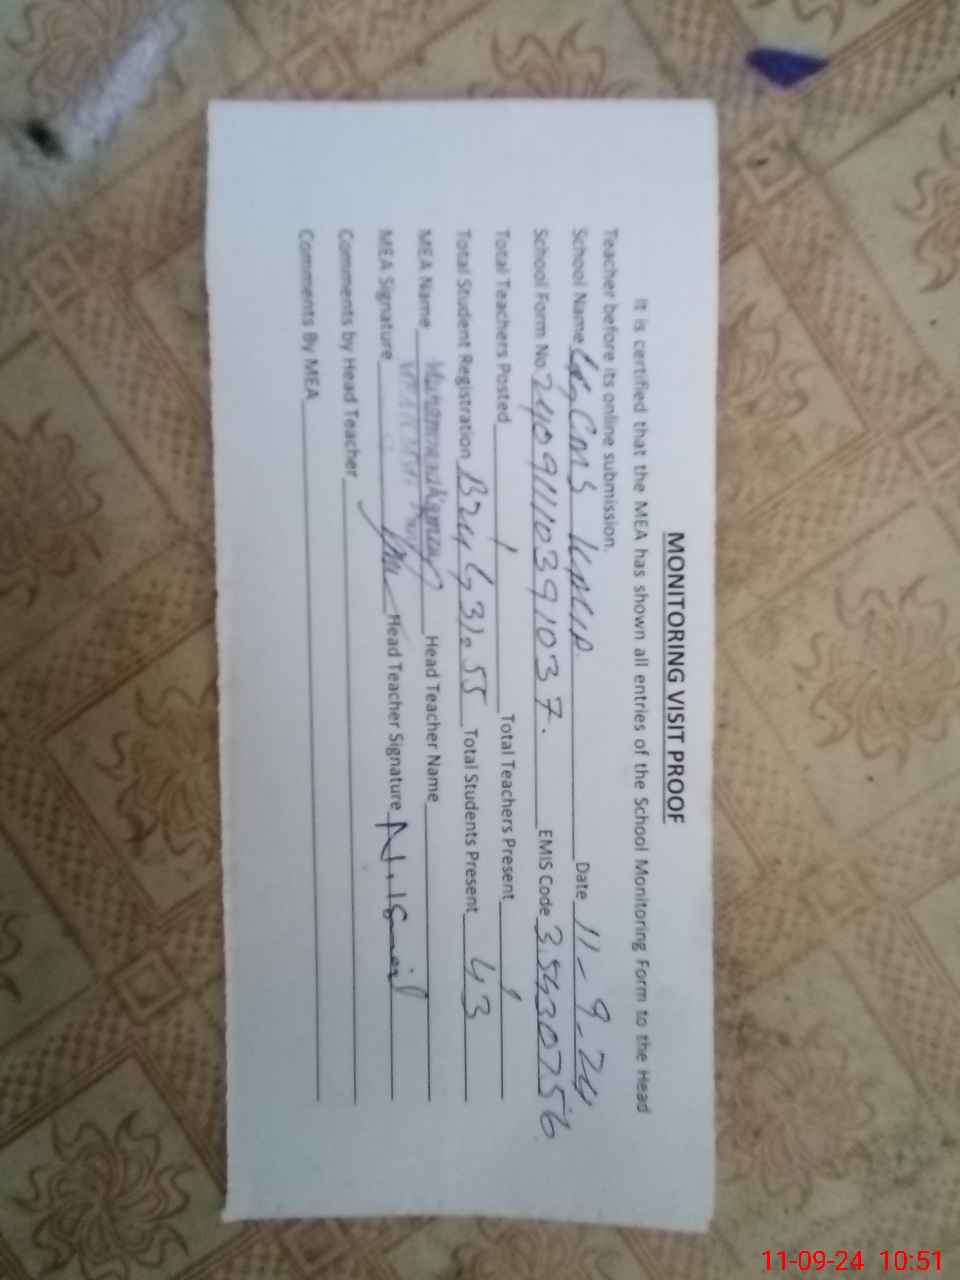 MONITORING VISIT PROOF
It is certified that the MEA has shown all entries of the School Monitoring Form to the Head
Teacher before its online submission.
School Name Date 11-9-24
School Form No 24091110391037. EMIS Code
Total Teachers Posted 1 Total Teachers Present 1
Total Student Registration 55 Total Students Present 43
MEA Name Head Teacher Name
MEA Signature Head Teacher Signature N.Ismail
Comments by Head Teacher
Comments By MEA
11-09-24 10:51